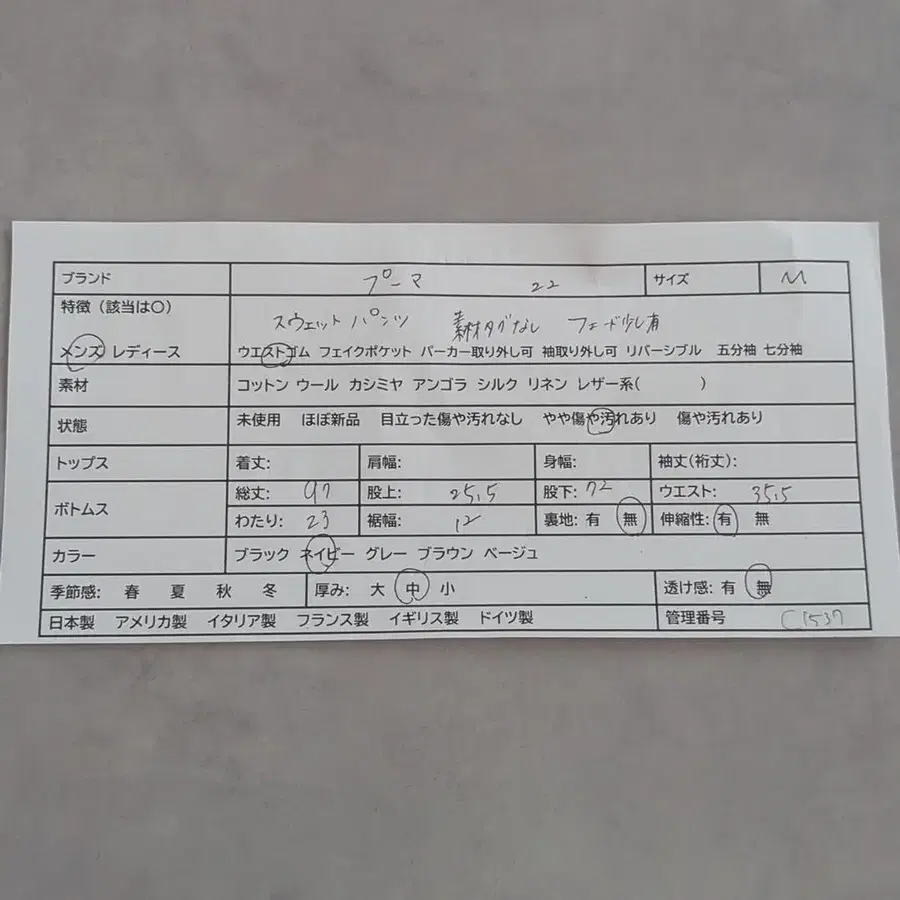 ブランド プーマ 22 サイズ M
特徴（該当は〇）
スウェットパンツ 素材タグなし フェード少し有
メンズ レディース ウエストゴム フェイクポケット パーカー取り外し可 袖取り外し可 リバーシブル 五分袖 七分袖
素材 コットン ウール カシミヤ アンゴラ シルク リネン レザー系( )
状態 未使用 ほぼ新品 目立った傷や汚れなし やや傷や汚れあり 傷や汚れあり
トップス 着丈: 肩幅: 身幅: 袖丈(裄丈):
ボトムス 総丈: 97 股上: 25,5 股下: 72 ウエスト: 35,5
わたり: 23 裾幅: 12 裏地: 有 無 伸縮性: 有 無
カラー ブラック ネイビー グレー ブラウン ベージュ
季節感: 春 夏 秋 冬 厚み: 大 中 小 透け感: 有 無
日本製 アメリカ製 イタリア製 フランス製 イギリス製 ドイツ製 管理番号 C1537